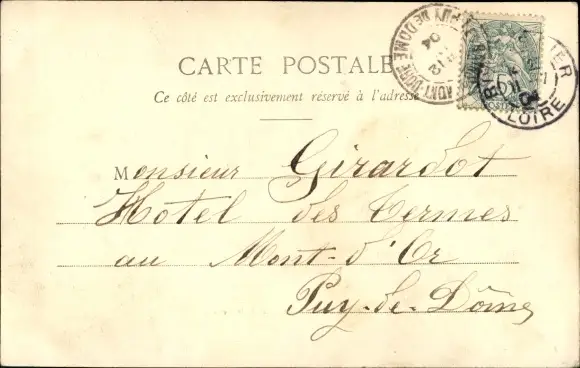 CARTE POSTALE
Ce côté est exclusivement réservé à l'adresse
MONT-DORE PUY DE DOME
12
04
LOIRE
Monsieur Girardot
Hotel des Termes
au Mont-d'Or
Puy-de-Dôme